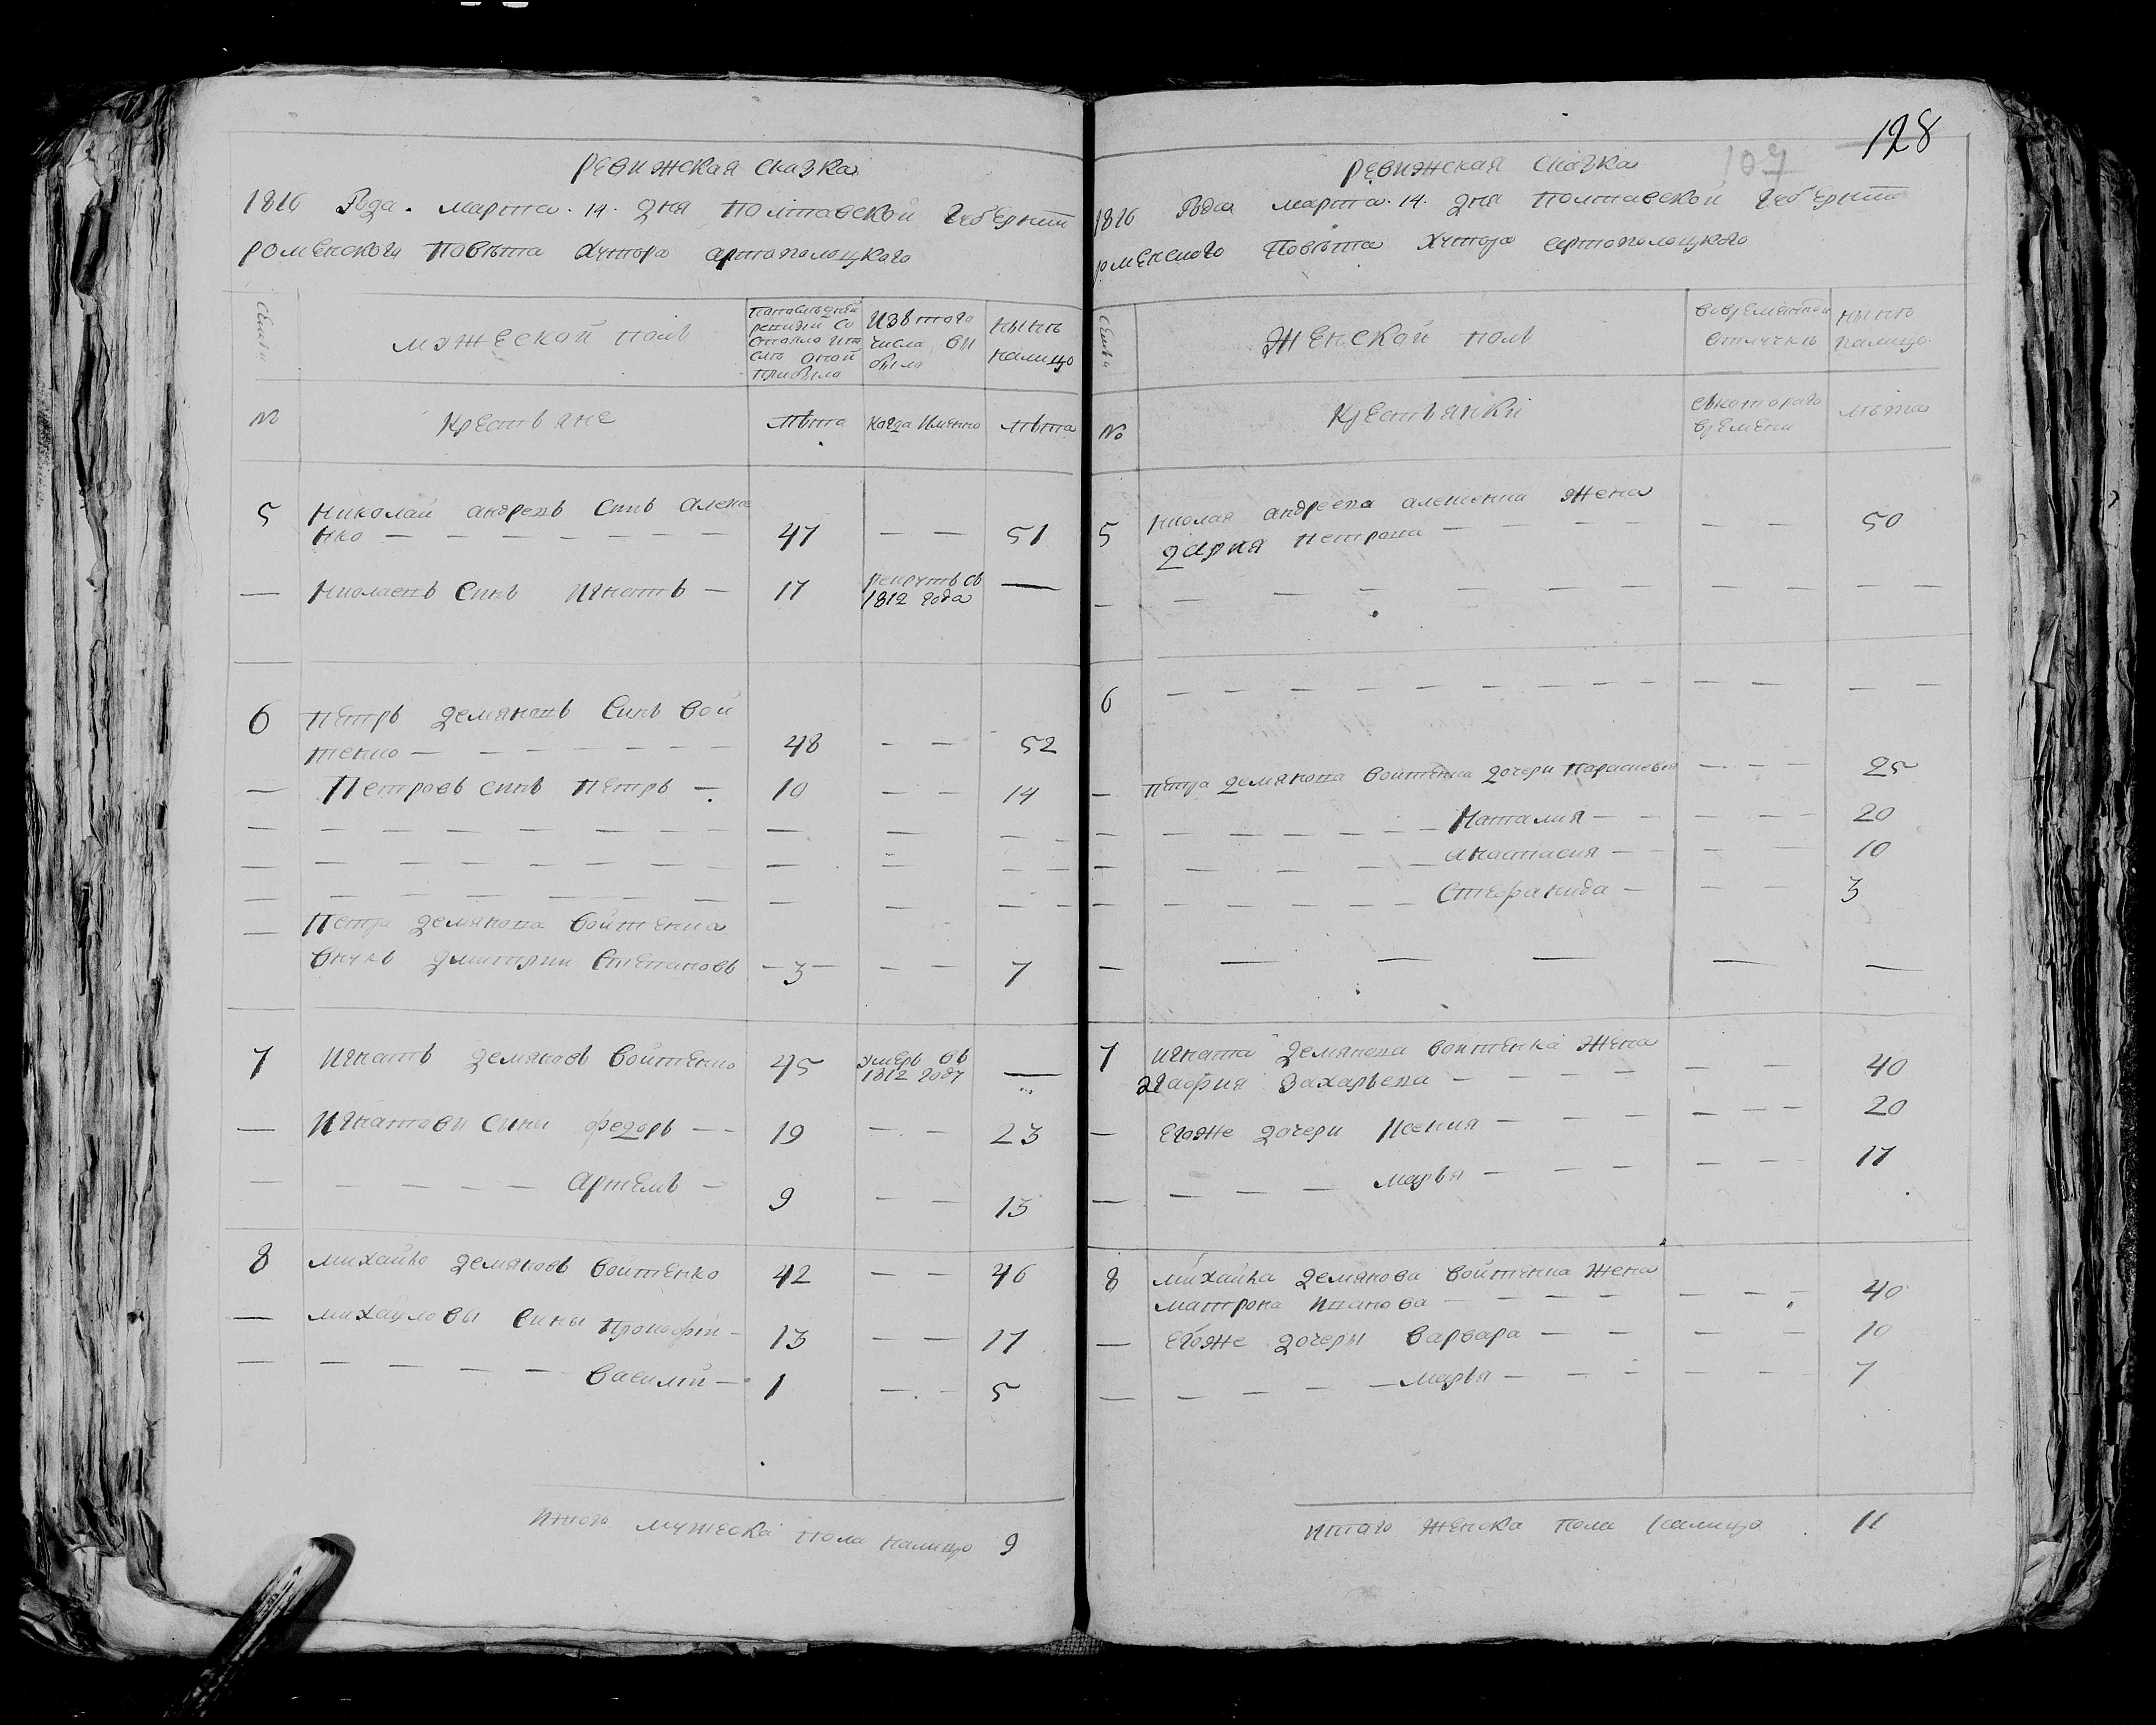 Ревижская сказка
1816 Года. марта. 14. дня Полтавской Губернии
роменского Повѣта Хутора артополоцкого
Семьи
мужеской полъ
Попослѣдней
ревизии со
стояло ипо
слѣ оной
прибыло
Изъ того
числа вы
было
нынѣ
налицо
№
крестьяне
лѣта
когда Именно
лѣта
5 Николай андреевъ Синъ Алексе
нко — 47 — — 51
— Николаевъ Синъ Игнатъ — 17 рекрутъ съ
1812 года —
6 Петръ Демяновъ Синъ Вой
тенко — 48 — — 52
— Петровъ синъ Петръ — 10 — — 14
— Петра Демянова Войтенка
Внукъ Дмитрии Степановъ — 3 — — — 7
7 Игнатъ Демяновъ Войтенко 45 умеръ въ
1812 году —
— Игнатови Сини федоръ — — 19 — — 23
— — — — — — Артемъ — 9 — — 13
8 михайло Демяновъ Войтенко 42 — — 46
— михайловы Сины Прокофій — 13 — — 17
— — — — — — Василій — 1 — — 5
Итого мужеска пола налицо 9
128
107
ревижская сказка
1816 Года марта. 14. дня Полтавской Губернии
роменского Повѣта Хутора артополоцкого
Семьи
Женской полъ
Вовременной
отлучкѣ
нынѣ
налицо.
№
Крестьянки
съкоторого
времени
лѣта
5 николая андреева алексенка Жена
Дария Петрова — — — — 50
6
— Петра Демянова Войтенка Дочери Параскевия — — — 25
Наталия — — — 20
Анастасия — — — 10
Стефанида — — — 3
7 Игната Демянова Войтенка Жена
Агафия Захарьева — — — 40
— Егоже Дочери Ксения — — — 20
— марья — — — 17
8 михайла Демянова Войтенка Жена
матрона Иванова — — — 40
— Егоже Дочери Варвара — — — 10
— марья — — — 7
Итого Женска Пола налицо 11